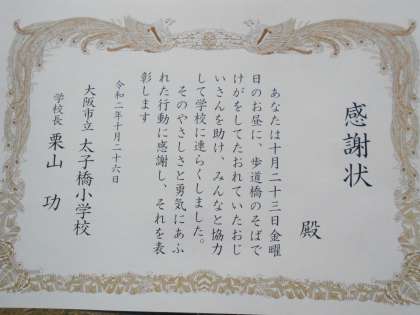 感謝状
殿
あなたは十月二十三日金曜
日のお昼に、歩道橋のそばで
けがをしてたおれていたおじ
いさんを助け、みんなと協力
して学校に連らくしました。
そのやさしさと勇気にあふ
れた行動に感謝し、それを表
彰します
令和二年十月二十六日
大阪市立 太子橋小学校
学校長 栗山 功